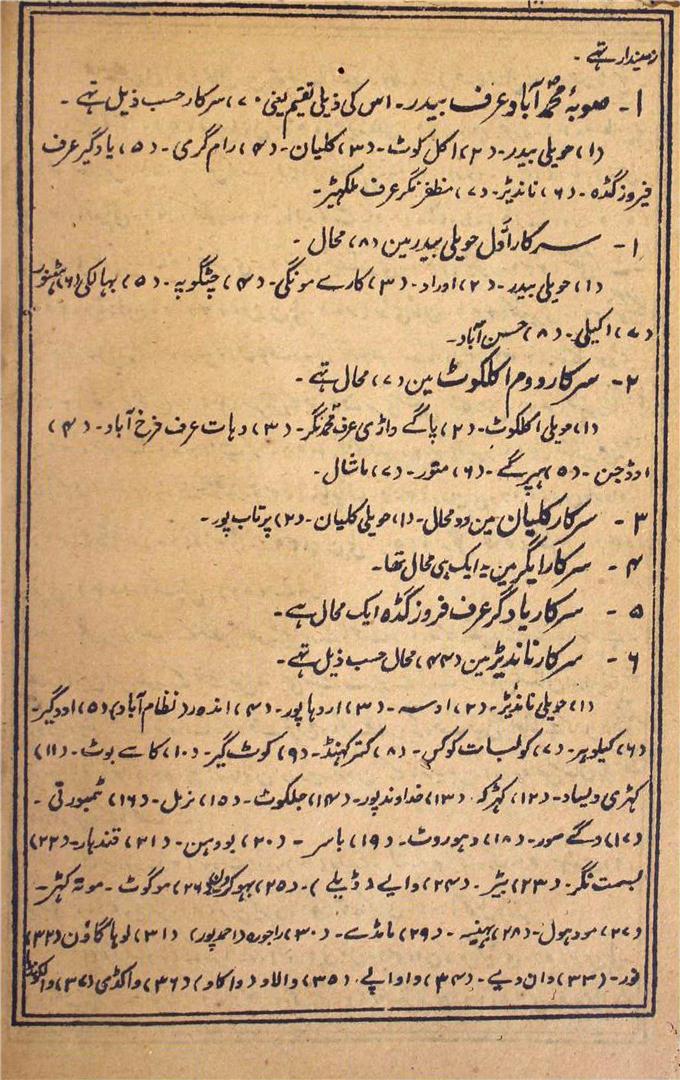 زمیندار تھے۔
۱۔ صوبۂ محمد آباد عرف بیدر۔ اس کی ذیلی تقیم یعنی (۷) سرکار حسب ذیل تھے۔
(۱) حویلی بیدر۔ (۲) اکل کوٹ۔ (۳) کلیان۔ (۴) رام گری۔ (۵) یادگیر عرف
فیروز گڈہ۔ (۶) نانڈیڑ۔ (۷) مظفر نگر عرف ملکھیڑ۔
۱۔ سرکار اوّل حویلی بیدر مین (۸) محال۔
(۱) حویلی بیدر۔ (۲) اوراد۔ (۳) کارے مونگی۔ (۴) چٹگوپہ۔ (۵) بہالکی (۶)
(۷) اکیلی۔ (۸) حسن آباد۔
۲۔ سرکار دوم اکلکوٹ مین (۷) محال تھے۔
(۱) حویلی اکلکوٹ۔ (۲) پاگے واڑی عرف محمد نگر۔ (۳) دہات عرف فرخ آباد۔ (۴)
اوڈجن۔ (۵) ہپرگے۔ (۶) متور۔ (۷) ماشال۔
۳۔ سرکار کلیان مین دو محال۔ (۱) حویلی کلیان۔ (۲) پرتاب پور۔
۴۔ سرکار رایگر مین یہ ایک ہی محال تھا۔
۵۔ سرکار یادگر عرف فروز گڈہ ایک محال ہے۔
۶۔ سرکار نانڈیڑ مین (۴۴) محال حسب ذیل تھے۔
(۱) حویلی نانڈیڑ۔ (۲) اوسہ۔ (۳) اردہاپور۔ (۴) اندور (نظام آباد) (۵) اودگیر۔
(۶) کیلوہر۔ (۷) کولمبات کوکس۔ (۸) کترکہنڈ۔ (۹) کوٹ گیر۔ (۱۰) کاسے بوٹ۔ (۱۱)
کہڑی ویساد۔ (۱۲) کہڑکہ (۱۳) خداوندپور۔ (۱۴) جلکوٹ۔ (۱۵) نرمل۔ (۱۶) ٹمبورتی۔
(۱۷) دگے مور۔ (۱۸) دہوروٹ۔ (۱۹) باسر۔ (۲۰) بودہن۔ (۲۱) قندہار۔ (۲۲)
بسمت نگر۔ (۲۳) بیڑ۔ (۲۴) وایے (ڈیلے)۔ (۲۵) بہوکر (۲۶) موگوٹ۔ موتہ کہڑ۔
(۲۷) مودہول۔ (۲۸) بہینسہ۔ (۲۹) مانڈے۔ (۳۰) راجورہ (احمد پور) (۳۱) لوہا گاؤن (۳۲)
نور۔ (۳۳) وان دیے۔ (۳۴) واواپے۔ (۳۵) والاو (واکاو) (۳۶) واکڈی (۳۷)